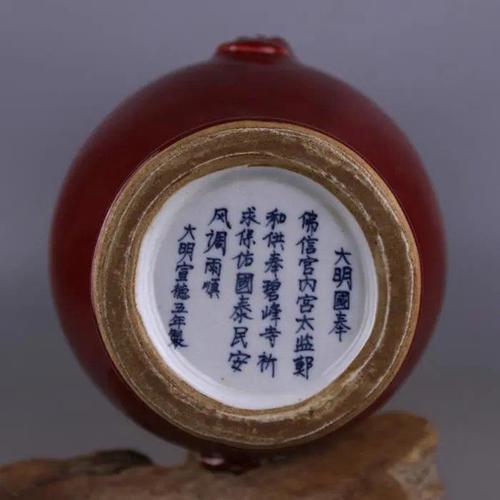 大明國奉
佛信官内宫太监鄭
和供奉碧峰寺祈
求保佑國泰民安
风調雨順
大明宣德五年製